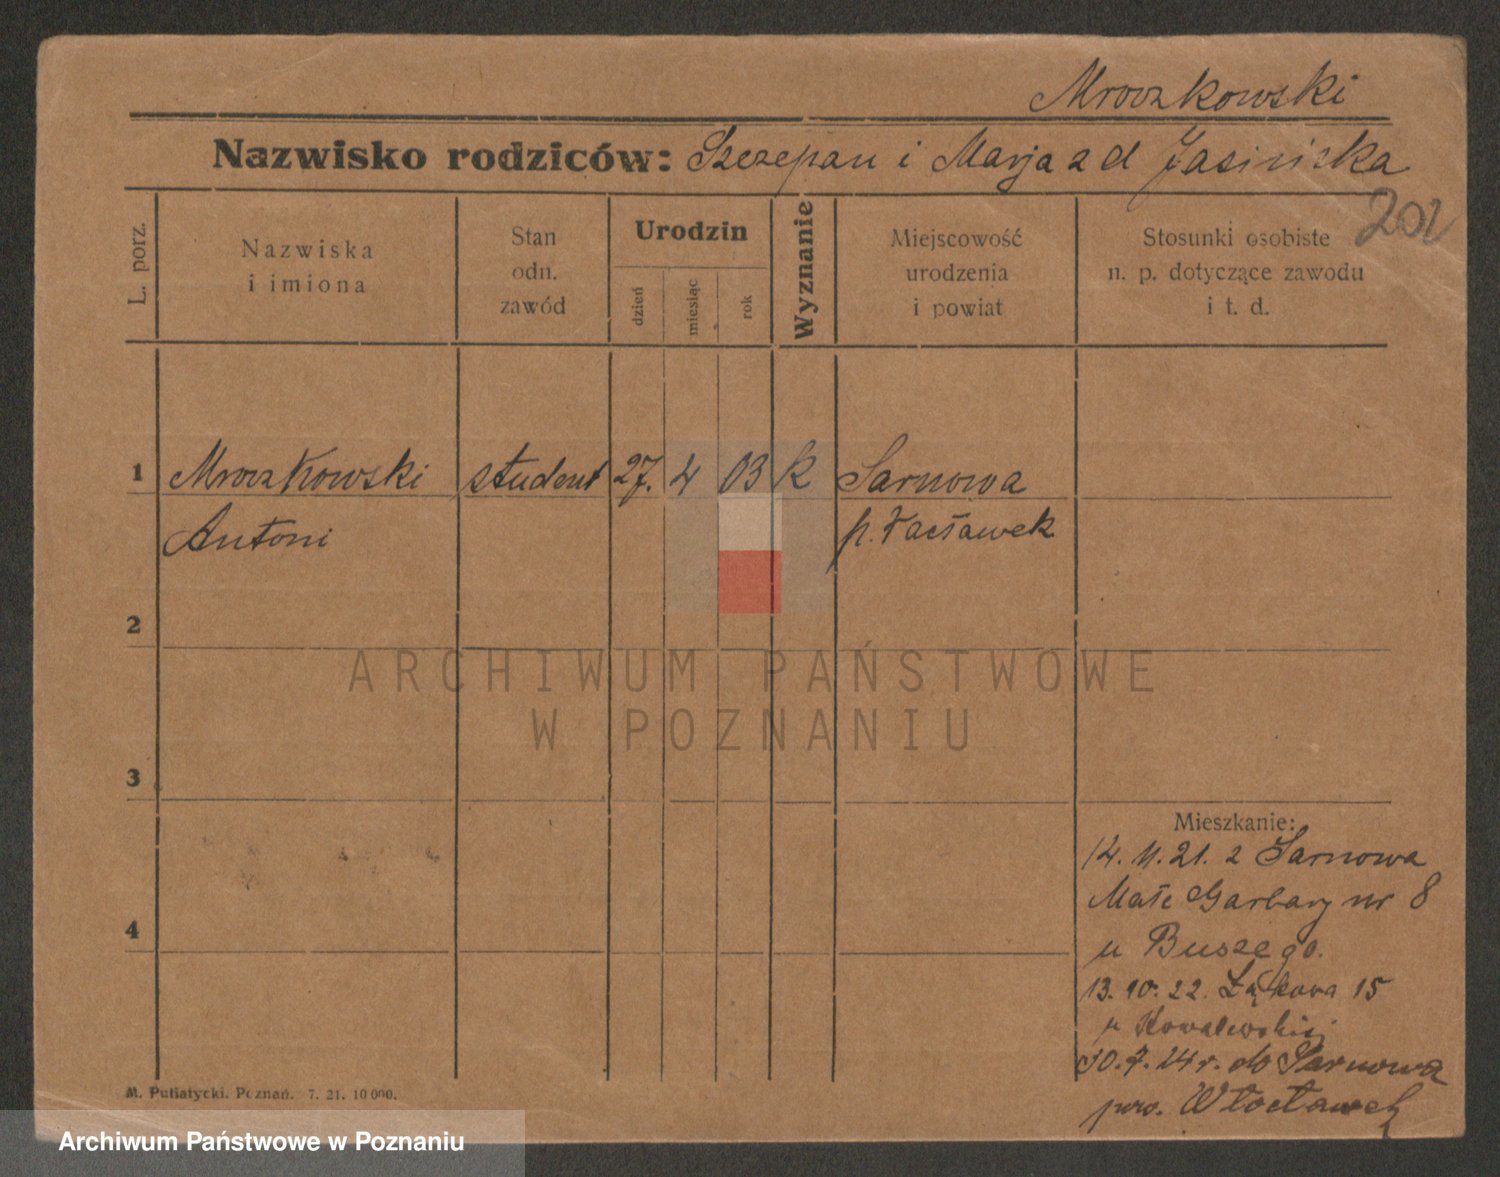 Mroczkowski
Nazwisko rodziców: Szczepan i Marja z d Jasińska
202
L. porz.
Nazwiska i imiona
Stan odn. zawód
Urodzin
dzień
miesiąc
rok
Wyznanie
Miejscowość urodzenia i powiat
Stosunki osobiste n. p. dotyczące zawodu i t. d.
1 Mroczkowski student 27. 4 03 k Sarnowa
Antoni p.
2
ARCHIWUM PAŃSTWOWE
W POZNANIU
3
Mieszkanie:
14. 11. 21. z Sarnowa
Małe Garbary nr 8
4
u Buszego.
13. 10. 22. Łąkowa 15
u Kowalewskiej
30. 7. 24 r. do Sarnowa
pow. Włocławek
M. Putiatycki. Poznań. 7. 21. 10 000.
Archiwum Państwowe w Poznaniu